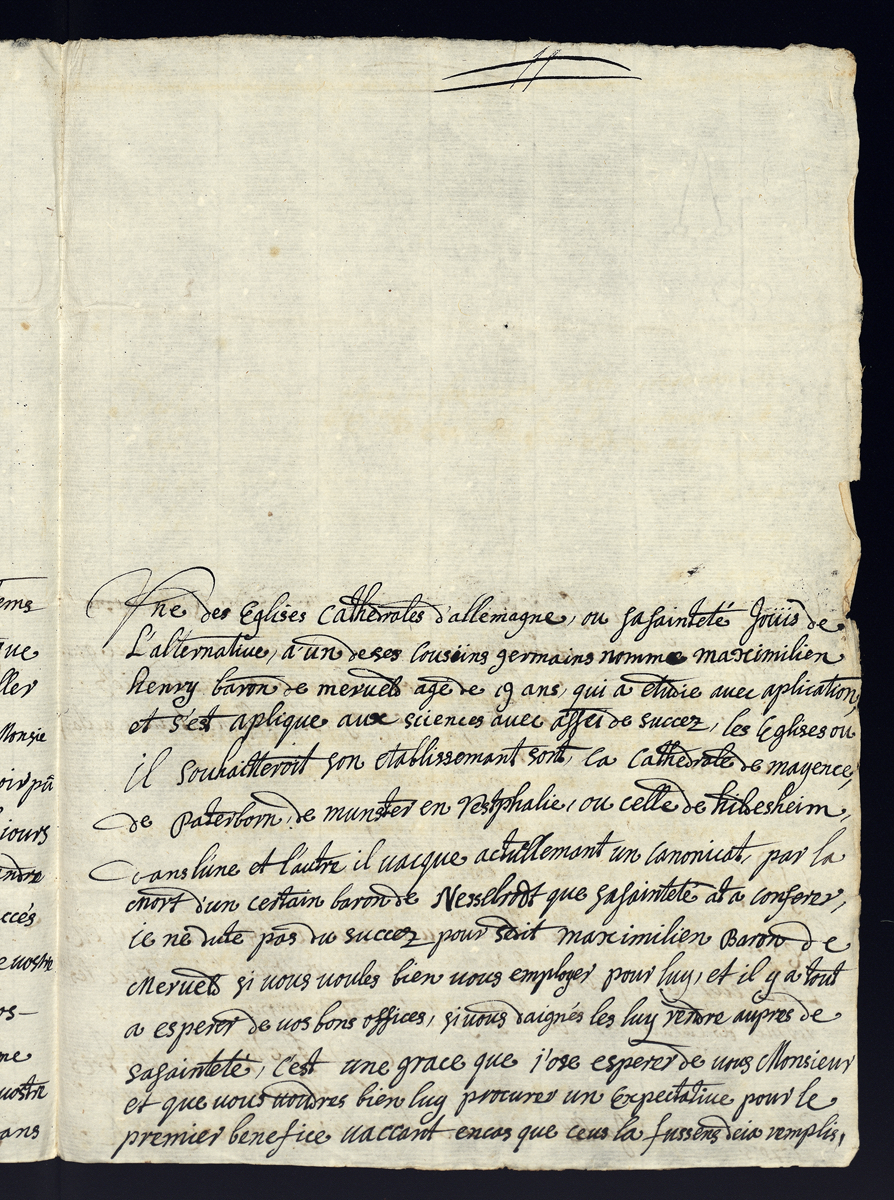 Vne des Eglises Cathedrales d'allemagne, ou sa sainteté Joüis de
L'alternative, a un de ses Cousins germains nomme maximilien
henry baron de mervels age de 19 ans, qui a etudie avec aplication,
et s'est aplique aux sciences avec assei de succez, les Eglises ou
il souhaitteroit son etablissemant sont, la Cathedrale de mayence,
de Paterborn, de munster en Vestphalie, ou celle de hildesheim,
dans l'une et l'autre il vacque actüellemant un Canonicat, par la
mort d'un certain baron de Nesselrodt que sa sainteté at a conferer,
ie ne dute pas du succez pour dit maximilien Baron de
Mervels si vous voules bien vous employer pour luy, et il y a tout
a esperer de vos bons offices, si vous daignés les luy rendre aupres de
sa sainteté, C'est une grace que j'ose esperer de vous Monsieur
et que vous voudres bien luy procurer un Expectative pour le
premier benefice vaccant encas que ceus la fussens deia remplis,
ems
que
ller
Monsie
oir pû
iours
endre
ccés
e vostre
os-
ne
vostre
ans